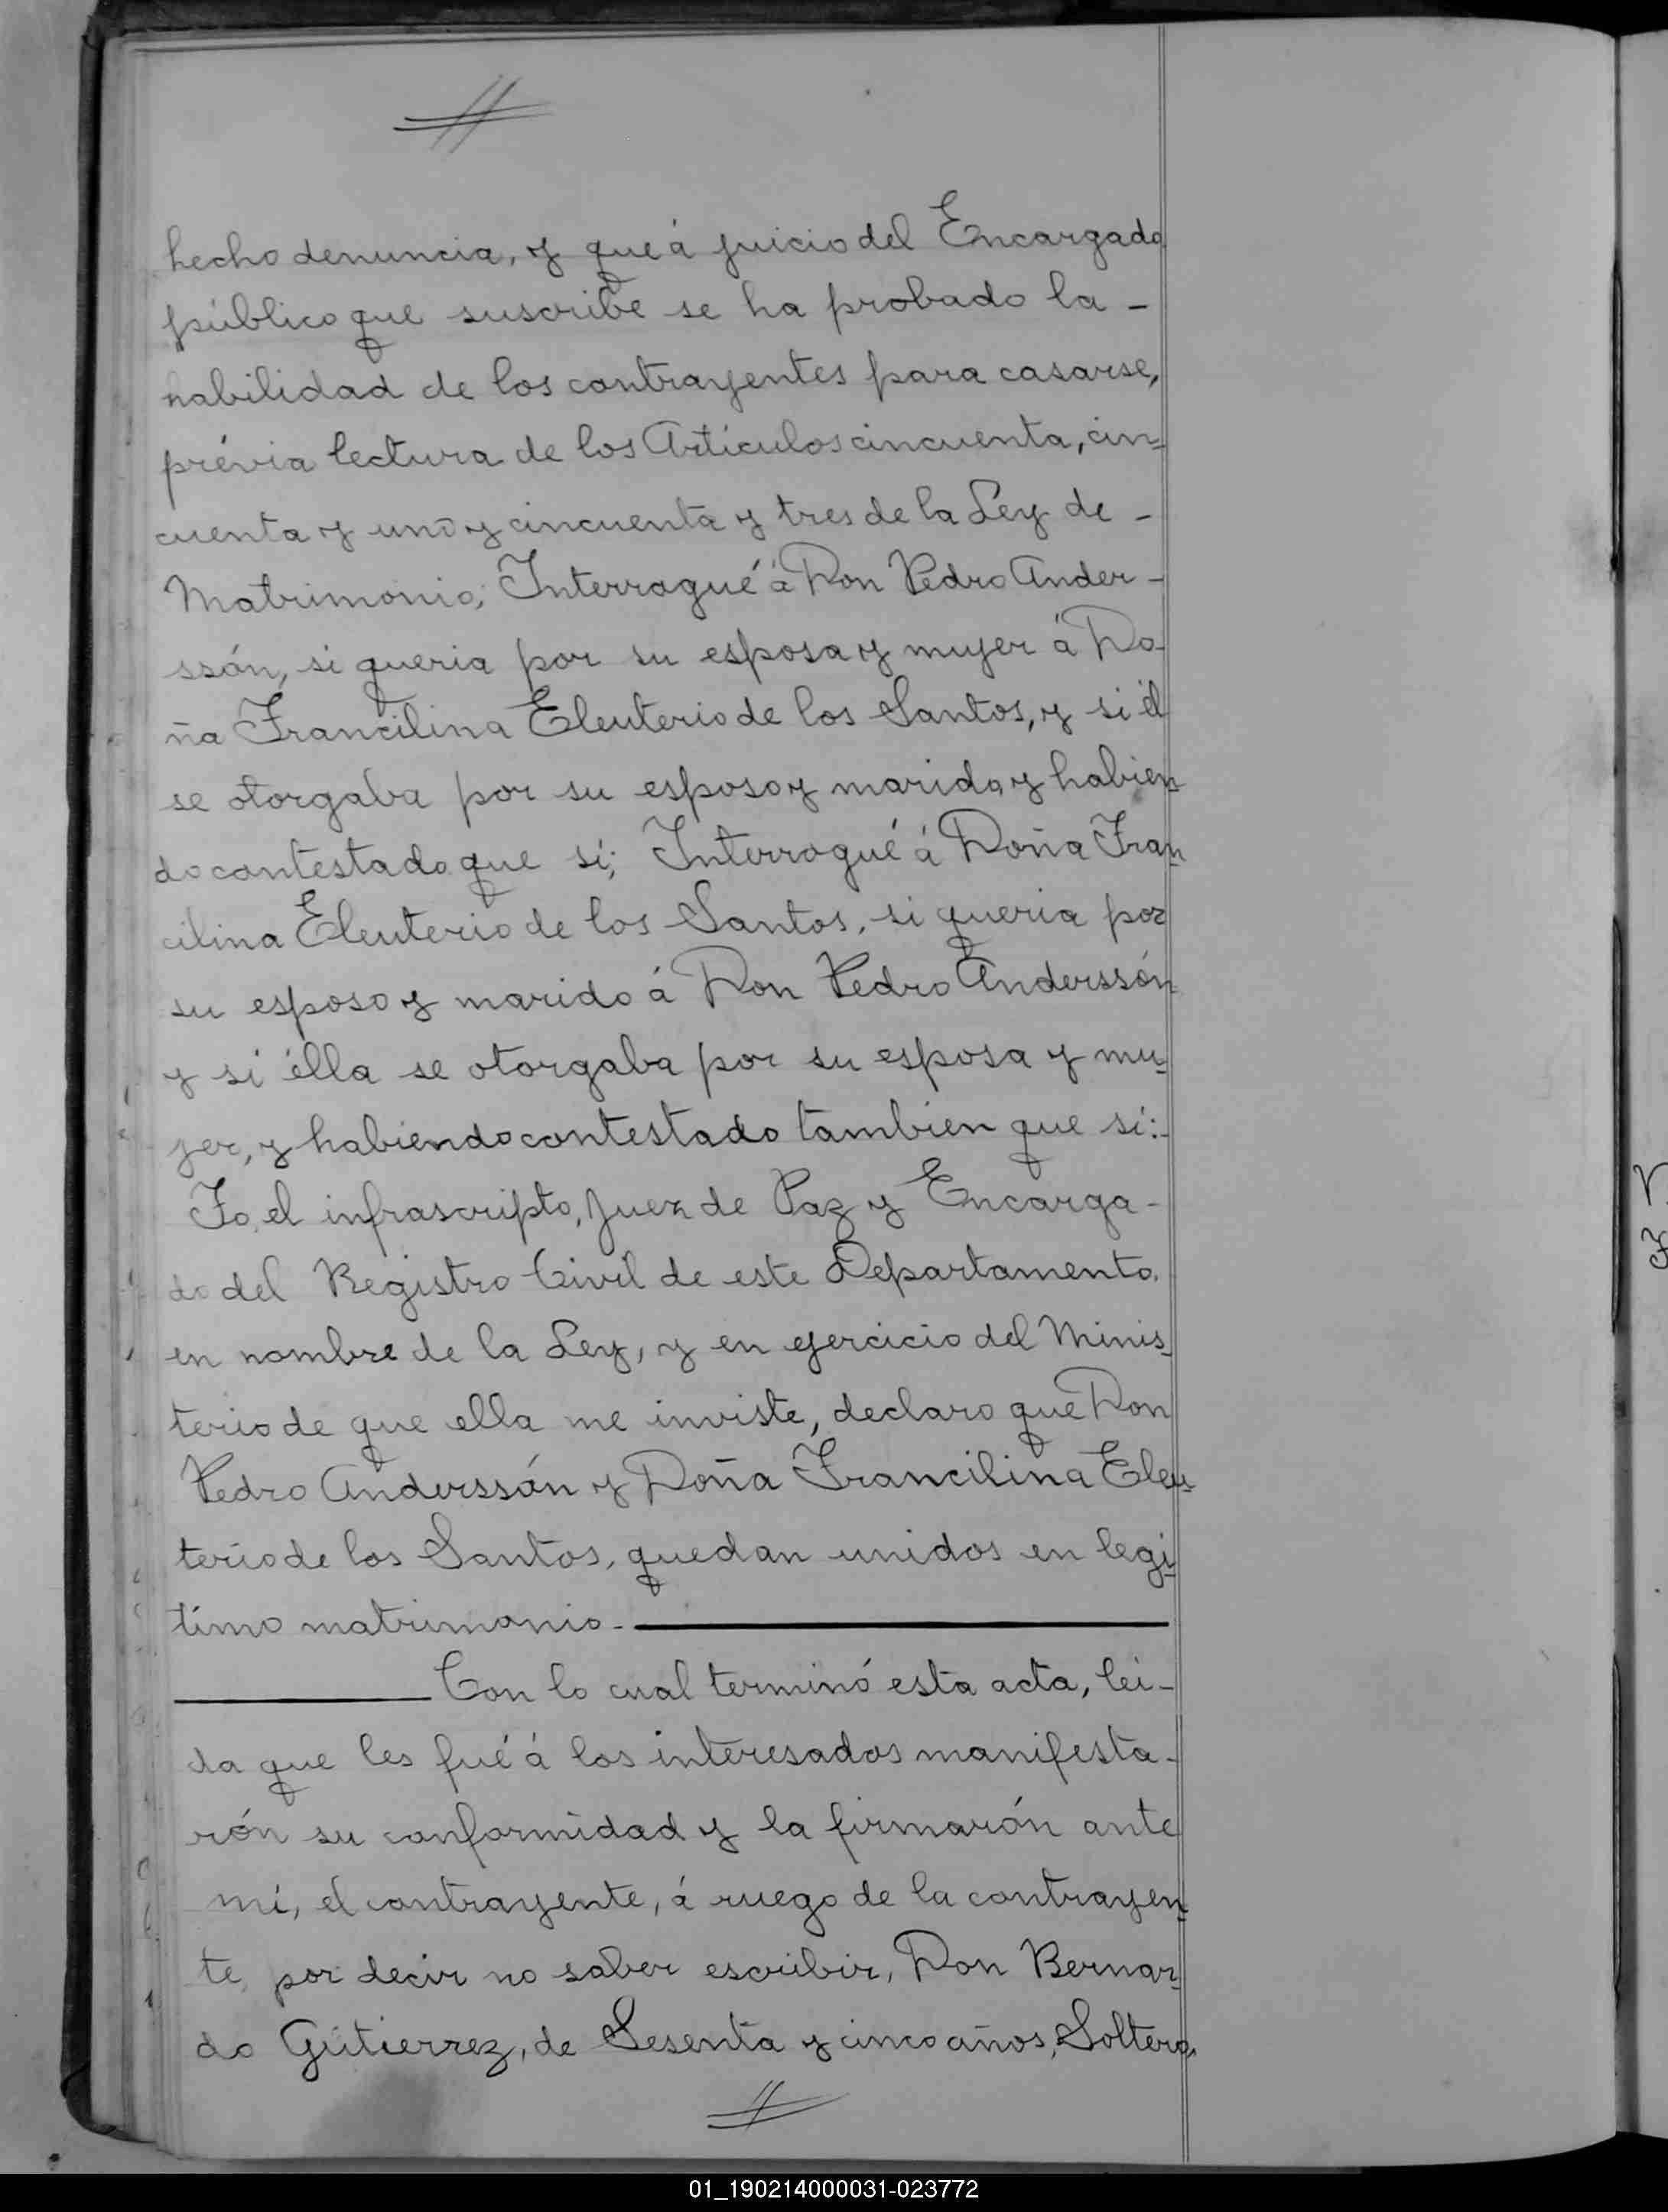 hecho denuncia, y que á juicio del Encargado
público que suscribe se ha probado la -
habilidad de los contrayentes para casarse,
prévia lectura de los Artículos cincuenta, cin=
cuenta y uno y cincuenta y tres de la Ley de -
Matrimonio; Interrogué á Don Pedro Ander -
ssón, si queria por su esposa y mujer á Do-
ña Francilina Eleuterio de los Santos, y si él
se otorgaba por su esposo y marido, y habien
do contestado que sí; Interrogué á Doña Fran
cilina Eleuterio de los Santos, si queria por
su esposo y marido á Don Pedro Anderssón
y si élla se otorgaba por su esposa y mu=
jer, y habiendo contestado tambien que sí:-
Yo, el infrascripto, Juez de Paz y Encarga -
do del Registro Civil de este Departamento,
en nombre de la Ley, y en ejercicio del Minis
terio de que ella me inviste, declaro que Don
Pedro Anderssón y Doña Francilina Eleu
terio de los Santos, quedan unidos en legi
timo matrimonio -
Con lo cual terminó esta acta, lei-
da que les fué á los interesados manifesta -
rón su conformidad y la firmarón ante
mí, el contrayente, á ruego de la contrayen
te, por decir no saber escribir, Don Bernar
do Gutierrez, de Sesenta y cinco años, Soltero,
01_190214000031-023772